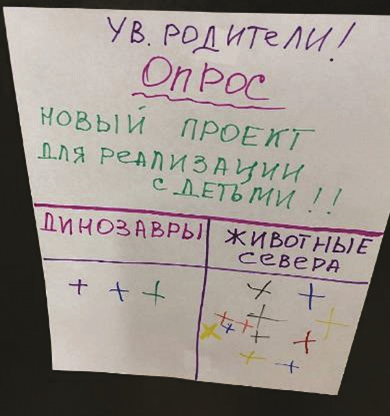 УВ. РОДИТЕЛИ!
ОПРОС
НОВЫЙ ПРОЕКТ
ДЛЯ РЕАЛИЗАЦИИ
С ДЕТЬМИ!!
ДИНОЗАВРЫ
ЖИВОТНЫЕ
СЕВЕРА